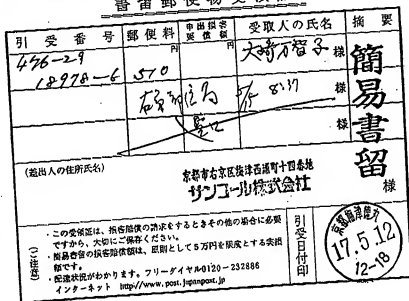 引受番号 郵便料 円 申出損害要償額 円 受取人の氏名 摘要
456-29
18978-6 510 様
5/15 8:37 様
様
簡易書留
(差出人の住所氏名)
京都市右京区梅津西浦町十四番地
サンコール株式会社 様
(ご注意)
・この受領証は、損害賠償の請求をするときその他の場合に必要
ですから、大切にご保存ください。
・簡易書留の損害賠償額は、原則として5万円を限度とする実損
額です。
・配達状況がわかります。フリーダイヤル0120-232886
インターネット http://www.post.japanpost.jp
引受日付印
17.5.12
12-18